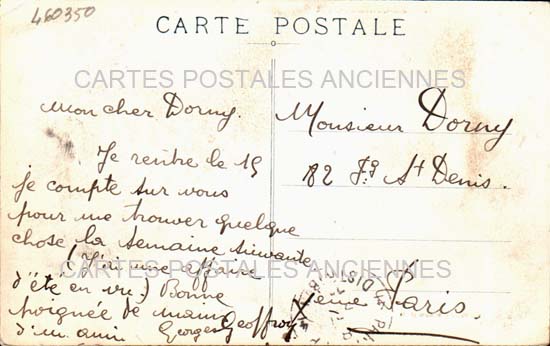 460350
CARTE POSTALE
CARTES POSTALES ANCIENNES
Mon cher Dorny.
Je rentre le 15
je compte sur vous
pour me trouver quelque
chose la semaine suivante
(J'ai une affaire
d'été en vue) Bonne
poignée de main
d'un ami Georges Geoffroy
Monsieur Dorny
82 Fg St Denis.
Xème Paris.
CARTES POSTALES ANCIENNES
DIST